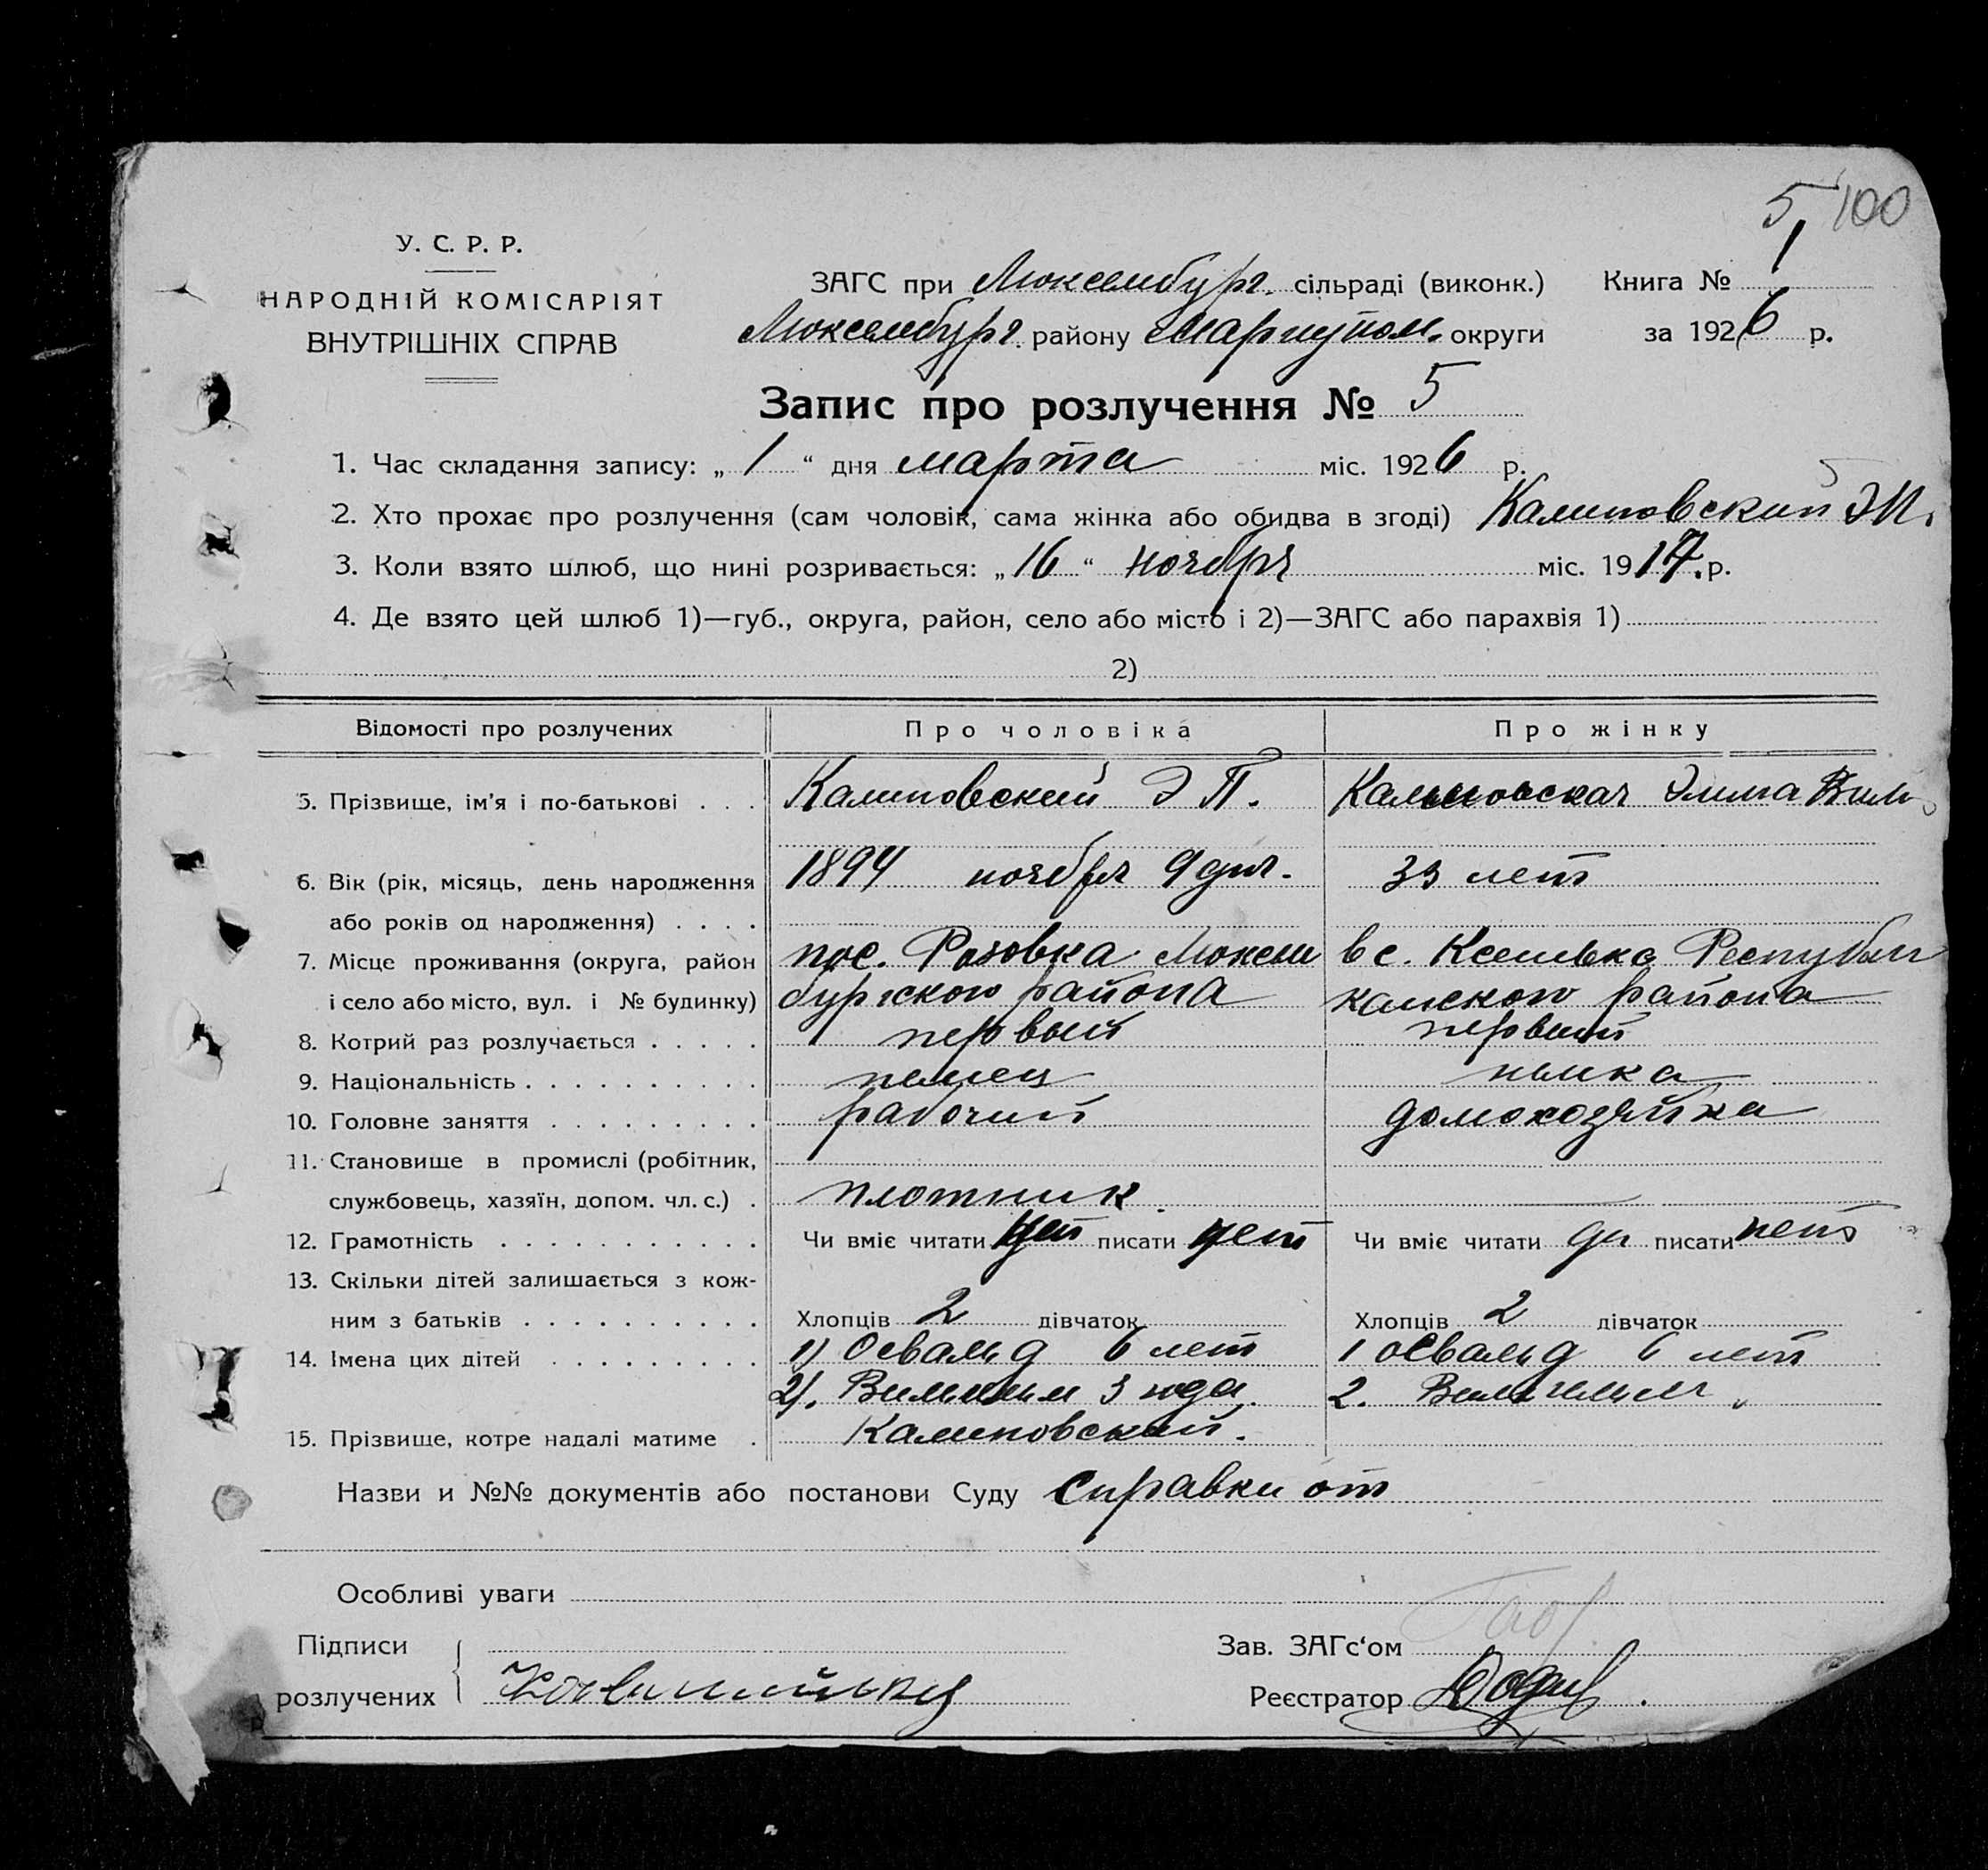 5/ 100
У. С. Р. Р.
НАРОДНІЙ КОМІСАРІЯТ
ВНУТРІШНІХ СПРАВ
ЗАГС при Люксембург. сільраді (виконк.) Книга №
Люксембург. району Мариупол. округи за 1926 р.
Запис про розлучення № 5
1. Час складання запису: „ 1 “ дня марта міс. 1926 р.
2. Хто прохає про розлучення (сам чоловік, сама жінка або обидва в згоді) Калиновский Э П.
3. Коли взято шлюб, що нині розривається: „ 16 “ ноября міс. 1917. р.
4. Де взято цей шлюб 1)—губ., округа, район, село або місто і 2)—ЗАГС або парахвія 1)
2)
Відомості про розлучених Про чоловіка Про жінку
5. Прізвище, ім'я і по-батькові . . . Калиновский Э П. Калиновская Эмма Вил
6. Вік (рік, місяць, день народження 1894 ноября 9 дня. 33 лет
або років од народження) . . . .
7. Місце проживання (округа, район пос. Розовка Люксем в с. Республи
і село або місто, вул. і № будинку) бургского района канского района
8. Котрий раз розлучається . . . . . первый первый
9. Національність . . . . . . . . . . немец немка
10. Головне заняття . . . . . . . . . рабочий домохозяйка
11. Становище в промислі (робітник,
службовець, хазяїн, допом. чл. с.) . плотник.
12. Грамотність . . . . . . . . . . . Чи вміє читати писати нет Чи вміє читати да писати нет
13. Скільки дітей залишається з кож-
ним з батьків . . . . . . . . . . Хлопців 2 дівчаток Хлопців 2 дівчаток
14. Імена цих дітей . . . . . . . . . 1) Освальд 6 лет 1 Освальд 6 лет
2). 3 года. 2. Вильгельм „
15. Прізвище, котре надалі матиме . Калиновский.
Назви и №№ документів або постанови Суду Справки от
Особливі уваги
Підписи Зав. ЗАГс‘ом
розлучених Реєстратор